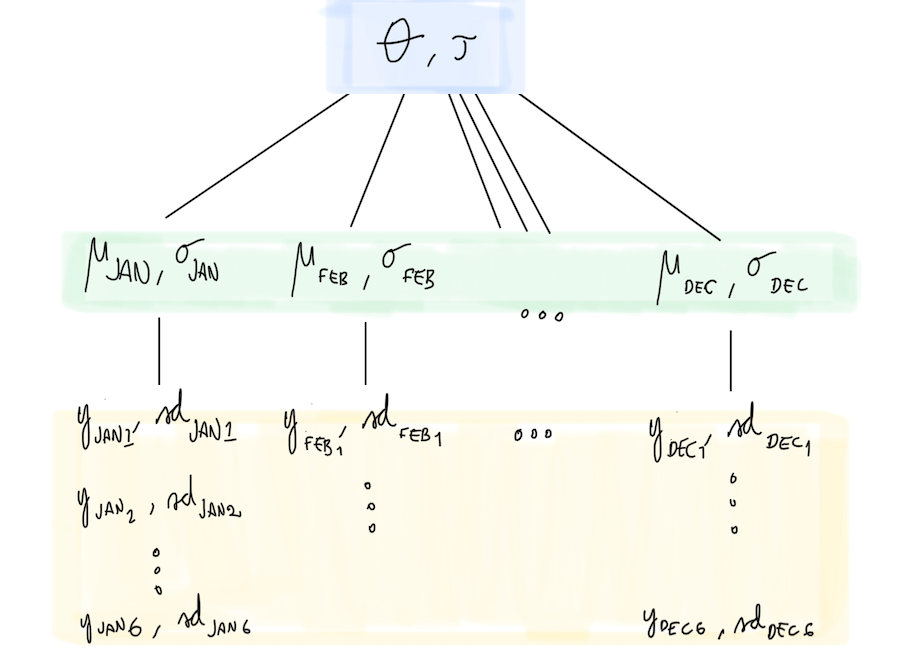 θ, τ
μ_JAN, σ_JAN μ_FEB, σ_FEB ... μ_DEC, σ_DEC
y_JAN1, sd_JAN1 y_FEB1, sd_FEB1 ... y_DEC1, sd_DEC1
y_JAN2, sd_JAN2
y_JAN6, sd_JAN6 y_DEC6, sd_DEC6